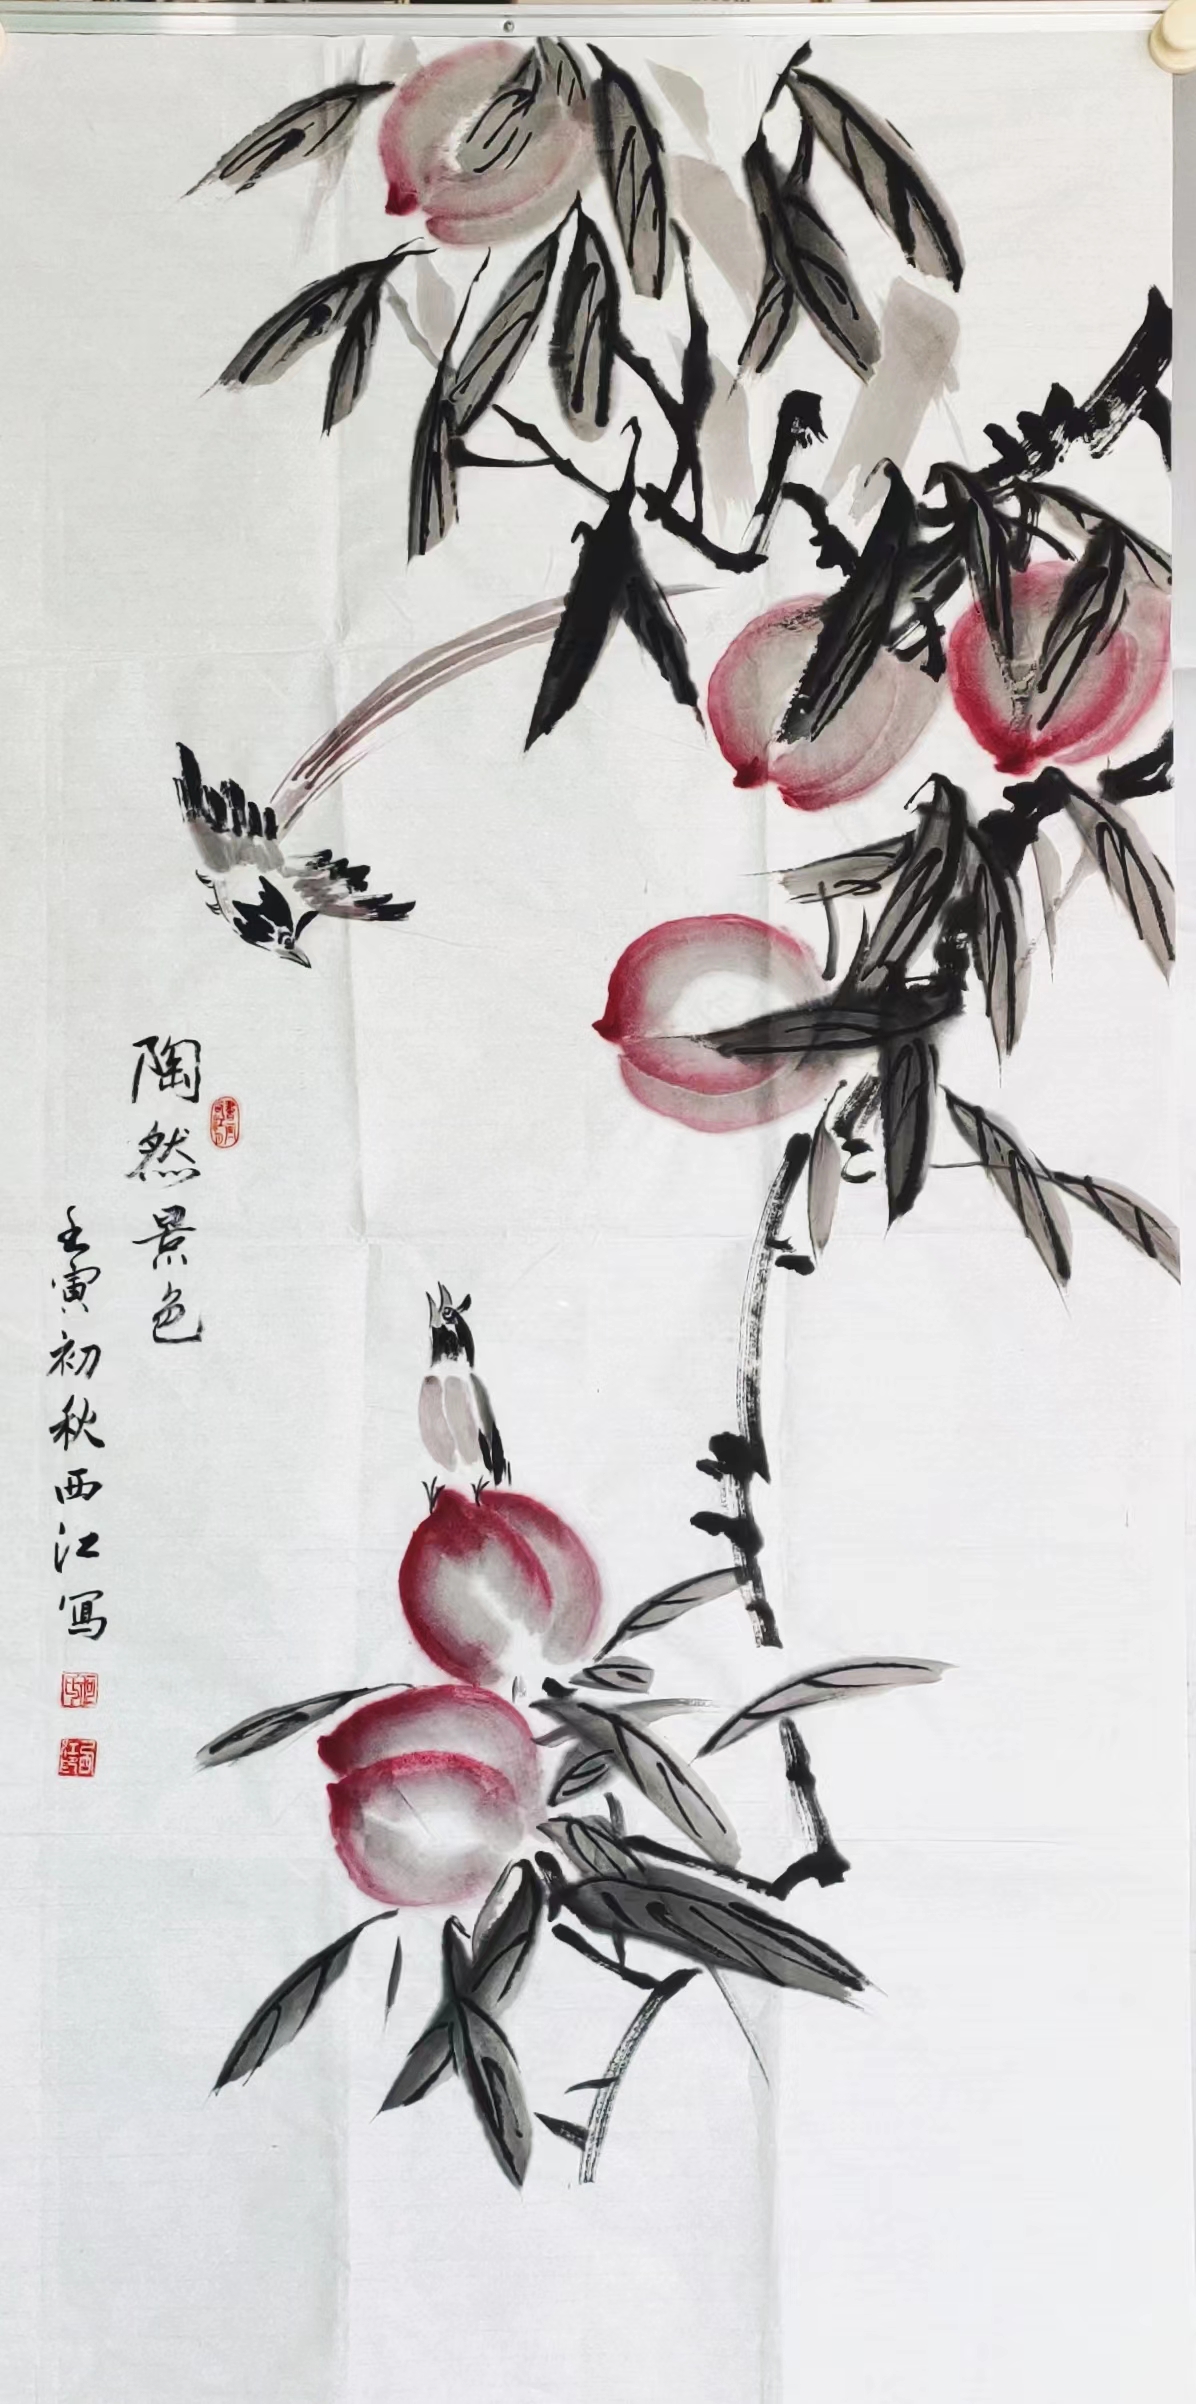 陶然景色
壬寅初秋西江寫